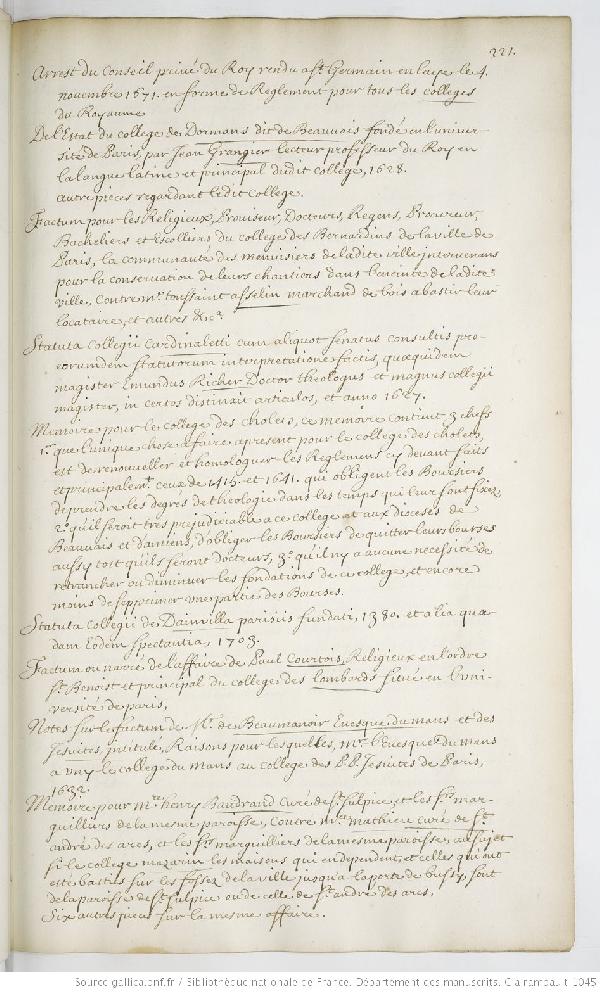 221.
Arrest du Conseil privé du Roy rendu a St. Germain en laye le 4.
novembre 1671. en forme de Reglement pour tous les colleges
du Royaume
De l'Estat du college de Dormans dit de Beauvois fondé en l'univer-
sité de Paris, par Jean Grangier lecteur professeur du Roy en
la langue latine et principal dudit college, 1628.
autre pieces regardant ledit College.
Factum pour les Religieux, Proviseur, Docteurs, Regens, Procureur,
Bacheliers et Escolliers du college des Bernardins de la ville de
Paris, la communauté des menuisiers de ladite ville intervenans
pour la conservation de leurs chantiers dans l'enceinte de ladite
ville, Contre Mr. toussaint asselin marchand de bois a bastir leur
locataire, et autres &ca.
Statuta Collegii Cardinaletti cum aliquot senatus consultis pro
eorumdem statutorum interpretatione factis, quæ quidem
magister Emundus Richer Doctor theologus et magnus collegii
magister, in certos distinxit articulos, et anno 1627.
Memoire pour le college des cholets, ce memoire contient 3 chefs
1.° que l'unique chose a faire a present pour le college des cholets,
est de renouveller et homologuer les Reglemens cy devant faits
et principalemt. ceux de 1415. et 1641. qui obligent les Boursiers
de prendre les degrés de theologie dans les temps qui leur sont fixez,
2.° qu'il seroit tres prejudiciable a ce college et aux dioceses de
Beauvais et d'amiens, d'obliger les Boursiers de quitter leurs bourses
aussy tost qu'ils seront docteurs, 3.° qu'il n'y a aucune necessité de
retrancher ou diminuer les fondations de ce college, et encore
moins de supprimer une partie des Bourses.
Statuta Collegii de Dainvilla parisiis fundati, 1380. et alia quæ-
dam eodem spectantia, 1703.
Factum ou narré de l'affaire de Paul Courtois, Religieux en l'ordre
St. Benoist et principal du college des lombards situé en l'uni-
versité de paris,
Notes sur le factum de Mr. de Beaumanoir Evesque du mans et des
Jesuites, intitulé, Raisons pour lesquelles, Mr. l'Evesque du Mans
a uny le college du Mans au college des P.P. Jesuites de Paris,
1632.
Memoire pour Mre. henry Baudrand Curé de St. Sulpice, et les Srs. mar-
guilliers de la mesme paroisse, Contre Mre. Mathieu Curé de St.
andré des arcs, et les Srs. marguilliers de la mesme paroisse, au sujet
si le college mazarin les maisons qui en dependent, et celles qui ont
esté basties sur les fossez de la ville jusqu'a la porte de bussy, sont
de la paroisse de St. Sulpice ou de celle de St. andré des arcs,
Six autres pieces sur la mesme affaire.
Source gallica.bnf.fr / Bibliothèque nationale de France. Département des manuscrits. Clairambault 1045